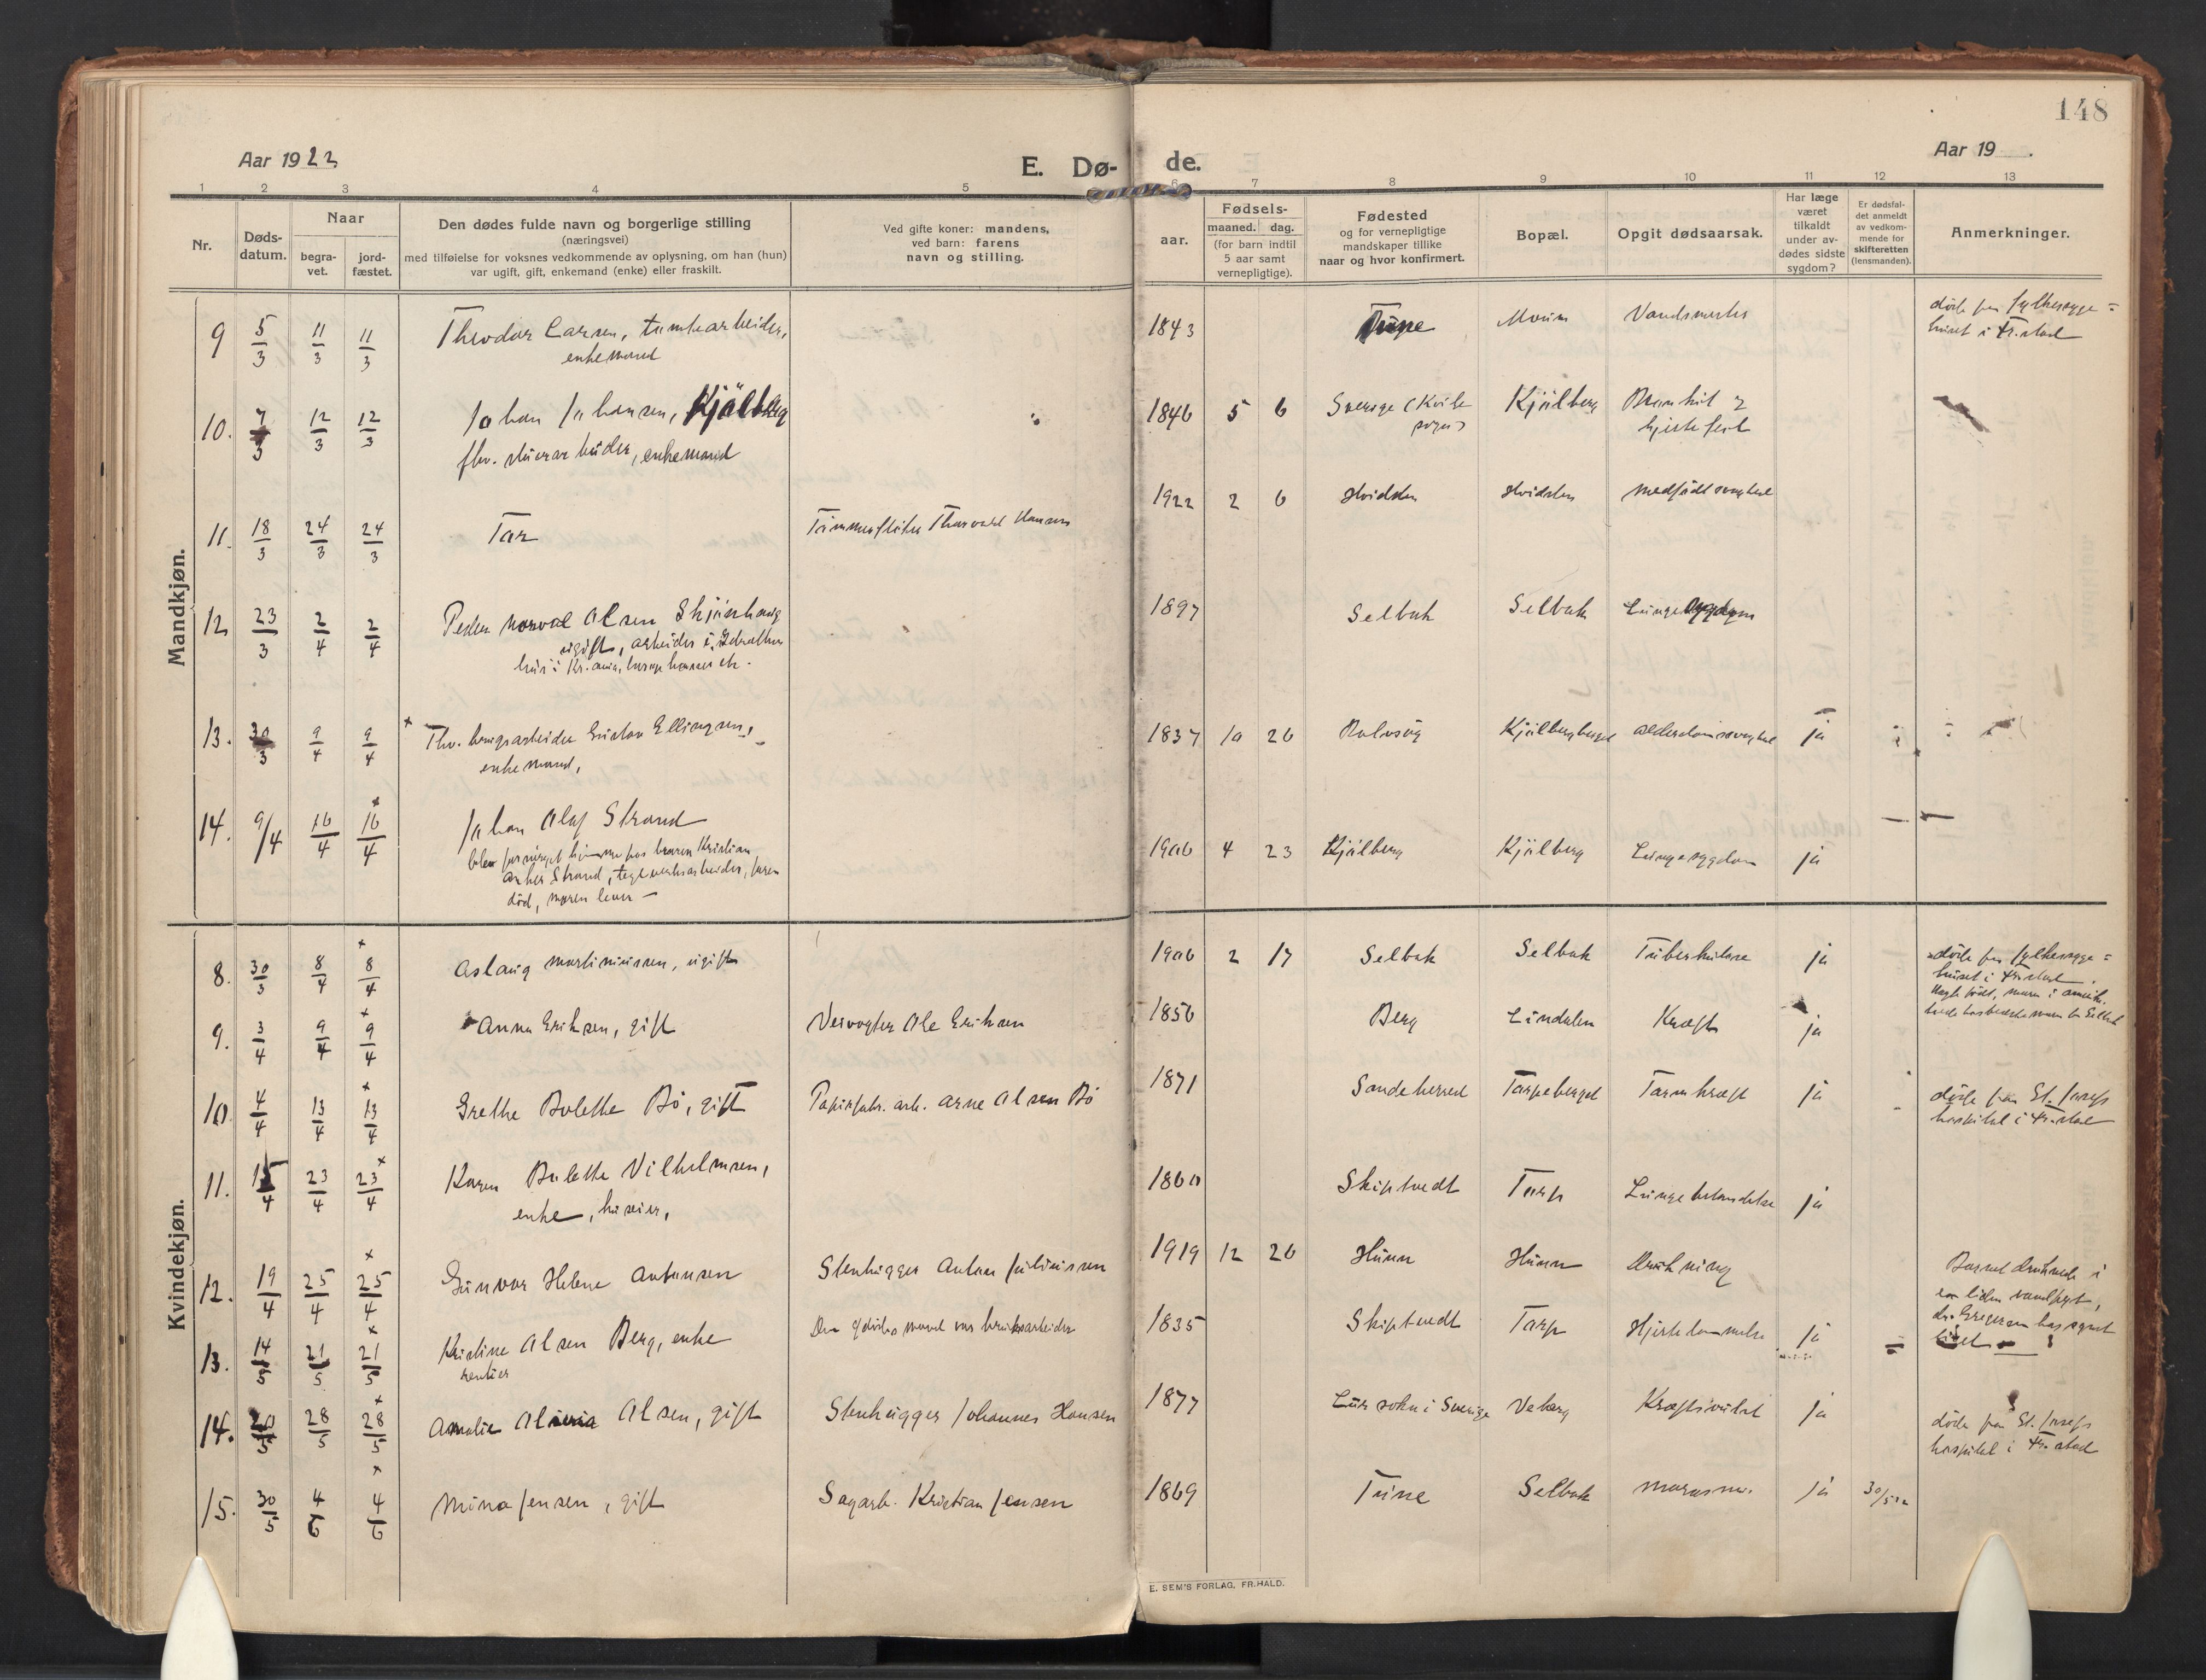 148
Aar 1922
E. Dø-
de.
Aar 19
1 2 3 4 5 6 7 8 9 10 11 12 13
Nr.
Døds-
datum.
Naar
begra-
vet.
jord-
fæstet.
Den dødes fulde navn og borgerlige stilling
(næringsvei)
med tilføielse for voksnes vedkommende av oplysning, om han (hun)
var ugift, gift, enkemand (enke) eller fraskilt.
Ved gifte koner: mandens,
ved barn: farens
navn og stilling.
aar.
Fødsels-
maaned. dag.
(for barn indtil
5 aar samt
vernepligtige).
Fødested
og for vernepligtige
mandskaper tillike
naar og hvor konfirmert.
Bopæl.
Opgit dødsaarsak.
Har læge
været
tilkaldt
under av-
dødes sidste
sygdom?
Er dødsfal-
det anmeldt
av vedkom-
mende for
skifteretten
(lensmanden).
Anmerkninger.
Mandkjøn.
9 5/3 11/3 11/3 Theodor Larsen, tomtearbeider, 1843 Tune Moum Vandsmerter døde paa fylkessyge=
enkemand
huset i Fr.stad
10. 7/3 12/3 12/3 Johan Johansen, Kjölberg 1846 5 6 Sverige (Kville Kjölberg
sogn)
hjertefeil
fhv. arbeider, enkemand
11. 18/3 24/3 24/3 Tor Tømmerfløter Thorvald Hansen 1922 2 6 Hvidsten Hvidsten medfødt svaghet
12 23/3 2/4 2/4 Peder Norval Olsen Skjønhaug 1897 Selbak Selbak Lungesygdom
ugift, arbeider i
hus i Kr.ania,
13. 30/3 9/4 9/4 Fhv. brugsarbeider Gustav Ellingsen, 1837 10 26 Rolvsøy Kjølbergberget alderdomssvaghet ja
enkemand,
14. 9/4 16/4 16/4 Johan Olaf Strand 1906 4 23 Kjølberg Kjølberg Lungesygdom ja
blev forsørget hjemme hos broren Kristian
Strand, teglverksarbeider, faren
død, moren lever —
Kvindekjøn.
8. 30/3 8/4 8/4 Aslaug Martiniussen, ugift 1906 2 17 Selbak Selbak Tuberkulose ja døde paa fylkessyge=
huset i Fr.stad.
9. 3/4 9/4 9/4 Anna Eriksen, gift Veivogter Ole Eriksen 1856 Berg Lindalen Kræft ja
10. 4/4 13/4 13/4 Grethe Bolette Bö, gift Papirfabr. arb. Arne Olsen Bö 1871 Sandeherred Torpeberget Tarmkræft ja døde paa St. Josefs
hospital i Fr.stad
11. 15/4 23/4 23/4 Karen Bolette Vilhelmsen, 1860 Skiptvedt Torp Lungebetændelse ja
enke, huseier,
12. 19/4 25/4 25/4 Gunvor Helene Antonsen Stenhugger Anton Juliussen 1919 12 26 Hunn Hunn drukning Barnet druknede i
en liden vandpyt,
13. 14/5 21/5 21/5 Kristine Olsen Berg, enke Den dødes mand var bruksarbeider 1835 Skiptvedt Torp Hjertelammelse ja
rentier
14. 20/5 28/5 28/5 Amalie Olsen, gift Stenhugger Johannes Hansen 1877 Lur sokn i Sverige Veberg Kræftsvulst ja døde paa St. Josefs
hospital i Fr.stad
15. 30/5 4/6 4/6 Mina Jensen, gift Sagarb. Kristian Jensen 1869 Tune Selbak marasmus ja 30/5 22
E. SEM'S FORLAG, FR.HALD.